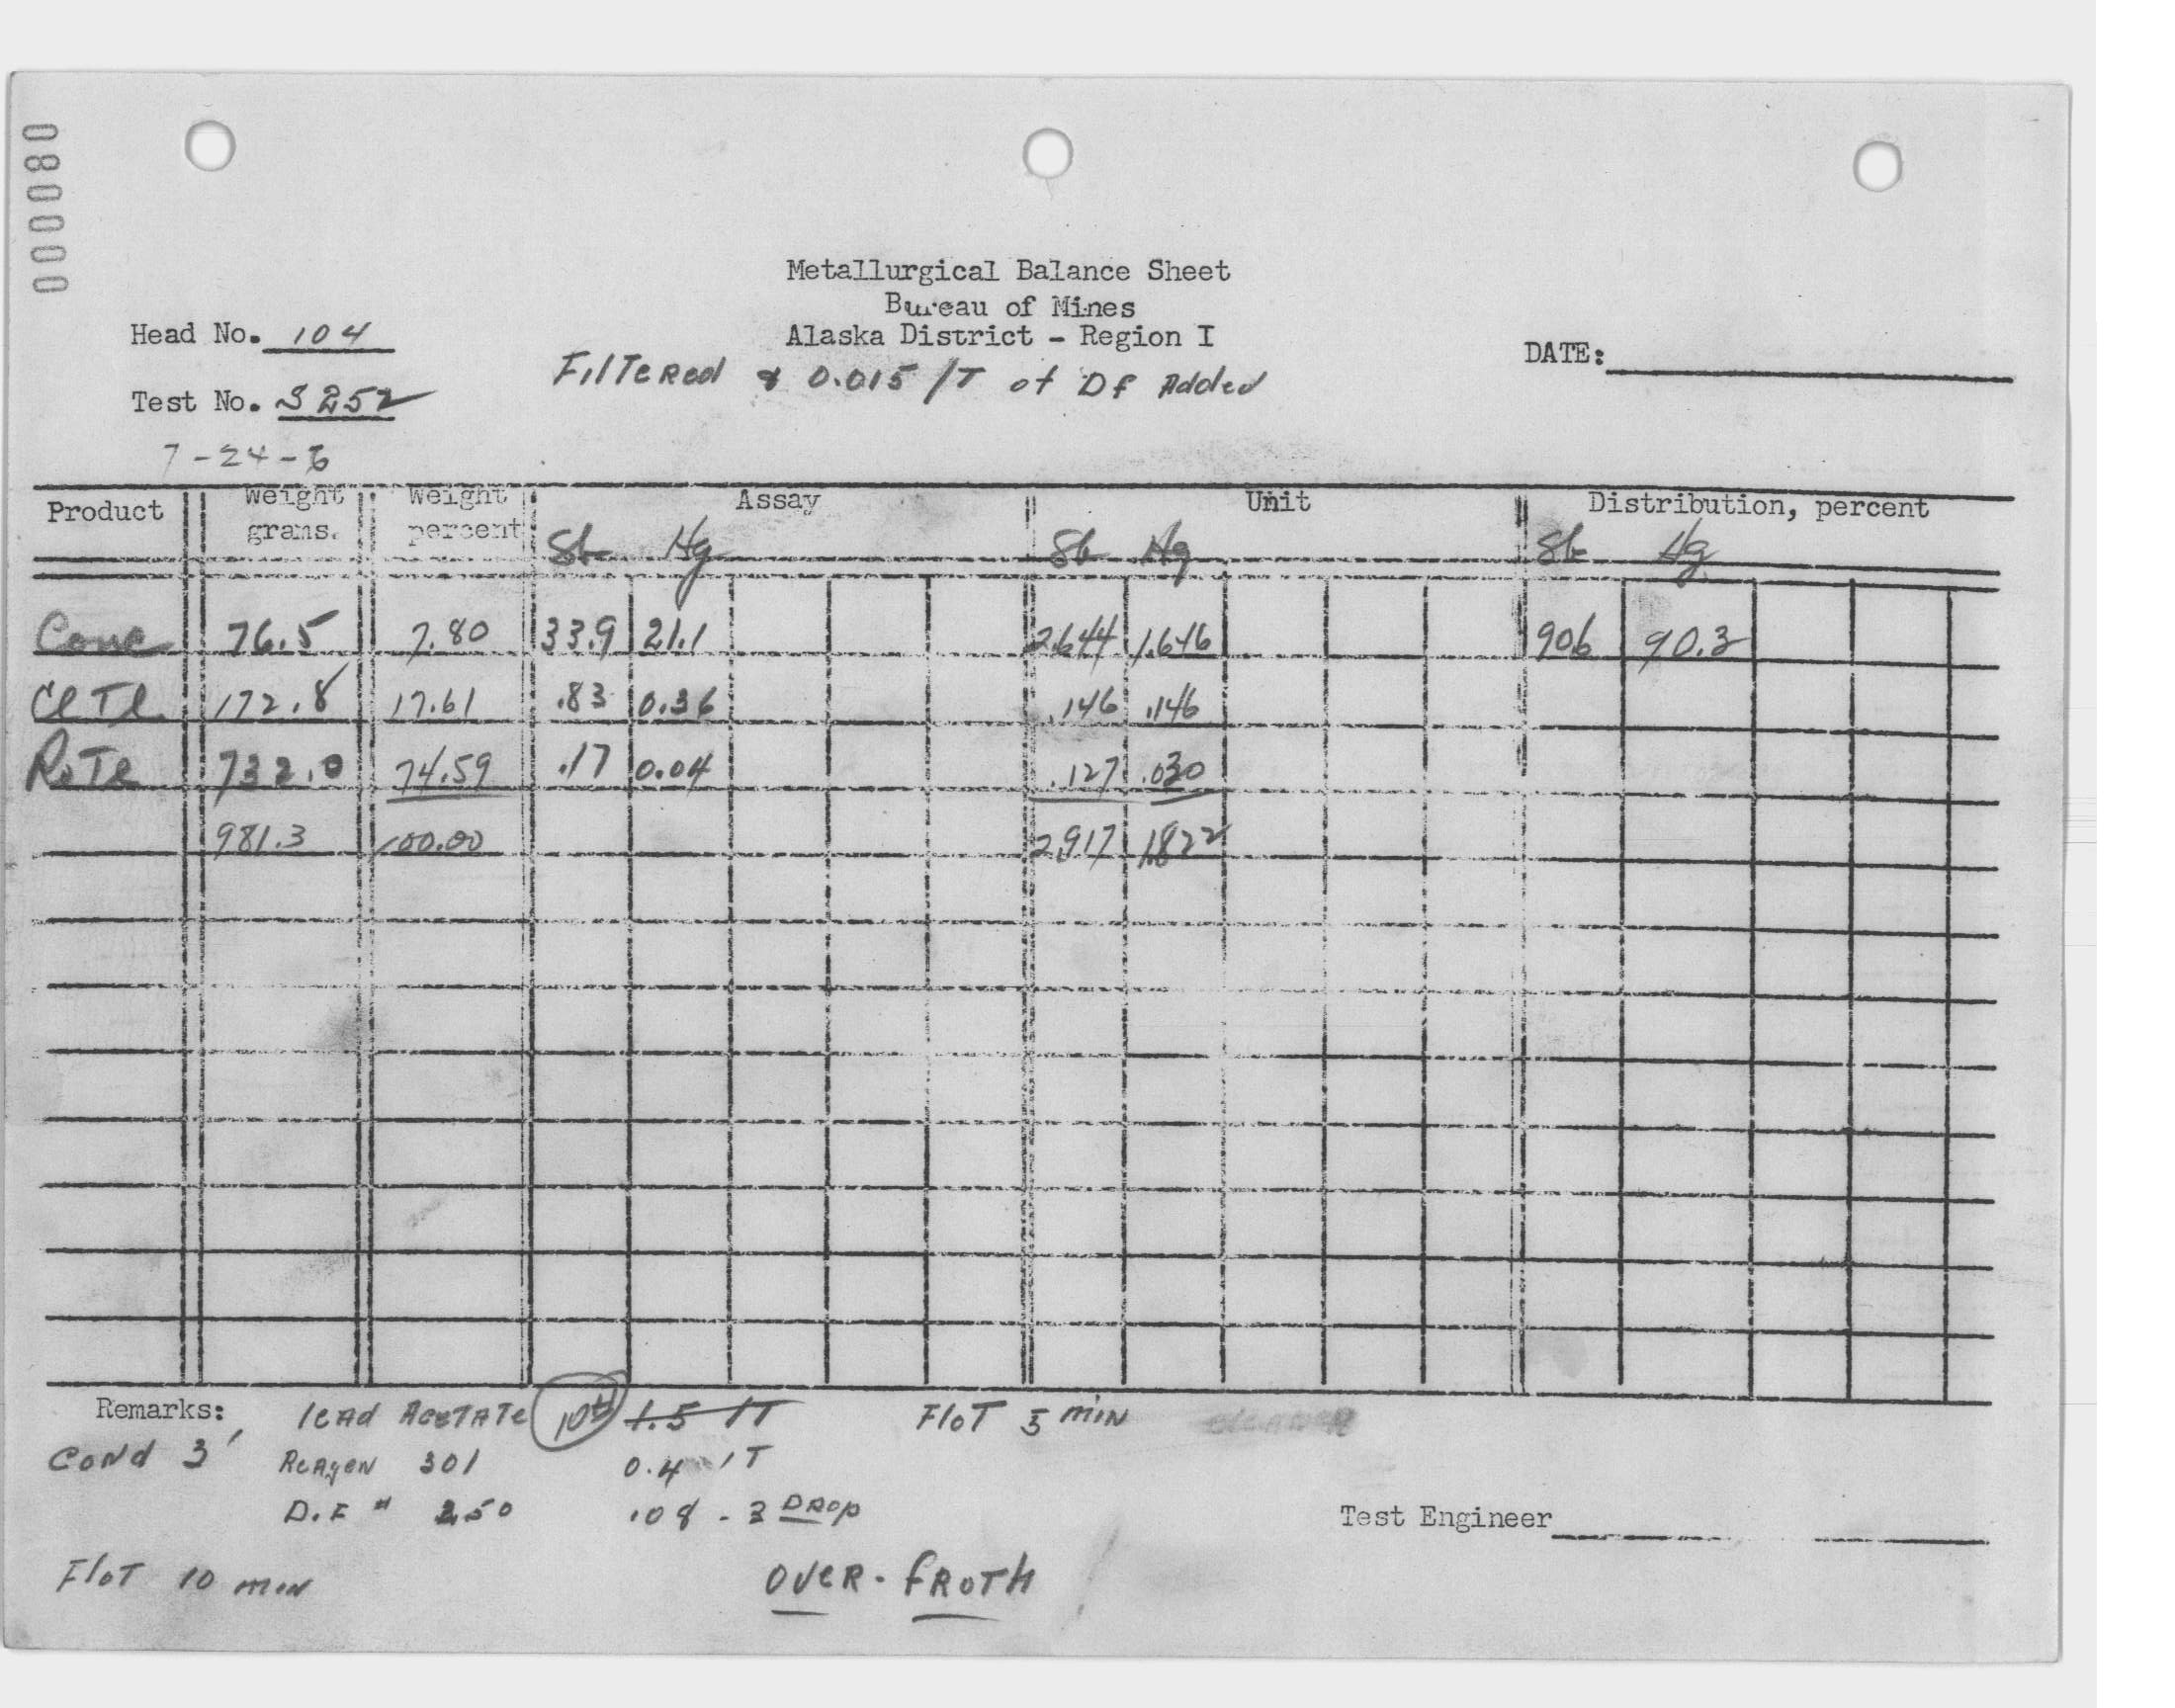 080000
Metallurgical Balance Sheet
Bureau of Mines
Alaska District - Region I
Head No. 104
DATE:
Filtered & 0.015 /T of Df Added
Test No. S252
7-24-6
Product Weight grams. Weight percent Assay Unit Distribution, percent
Sb Hg Sb Hg Sb Hg
Conc 76.5 7.80 33.9 21.1 2.644 1.646 90.6 90.3
Cl Tl 172.8 17.61 .83 0.36 .146 .146
Ro Tl 732.0 74.59 .17 0.04 .127 .030
981.3 100.00 2.917 1.822
Remarks: lead Acetate 1.5 /T Flot 5 min cleaner
Cond 3' Reagen 301 0.4 /T
D.F # 250 .08 - 3 Drop
Test Engineer
Flot 10 min Over-froth